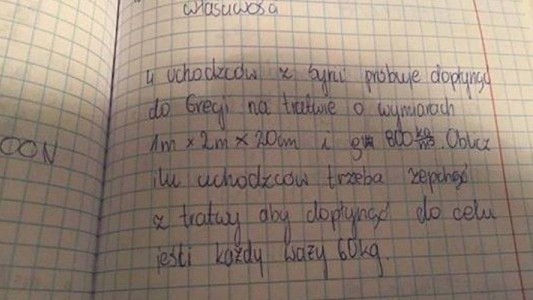 własność
4 uchodzców z Syrii próbuje dopłynąć
do Grecji na tratwie o wymiarach
OON
1m x 2m x 20cm i g 800 kg/m3. Oblicz
ilu uchodzców trzeba zepchąć
z tratwy aby dopłynąć do celu
jeśli każdy waży 60kg.